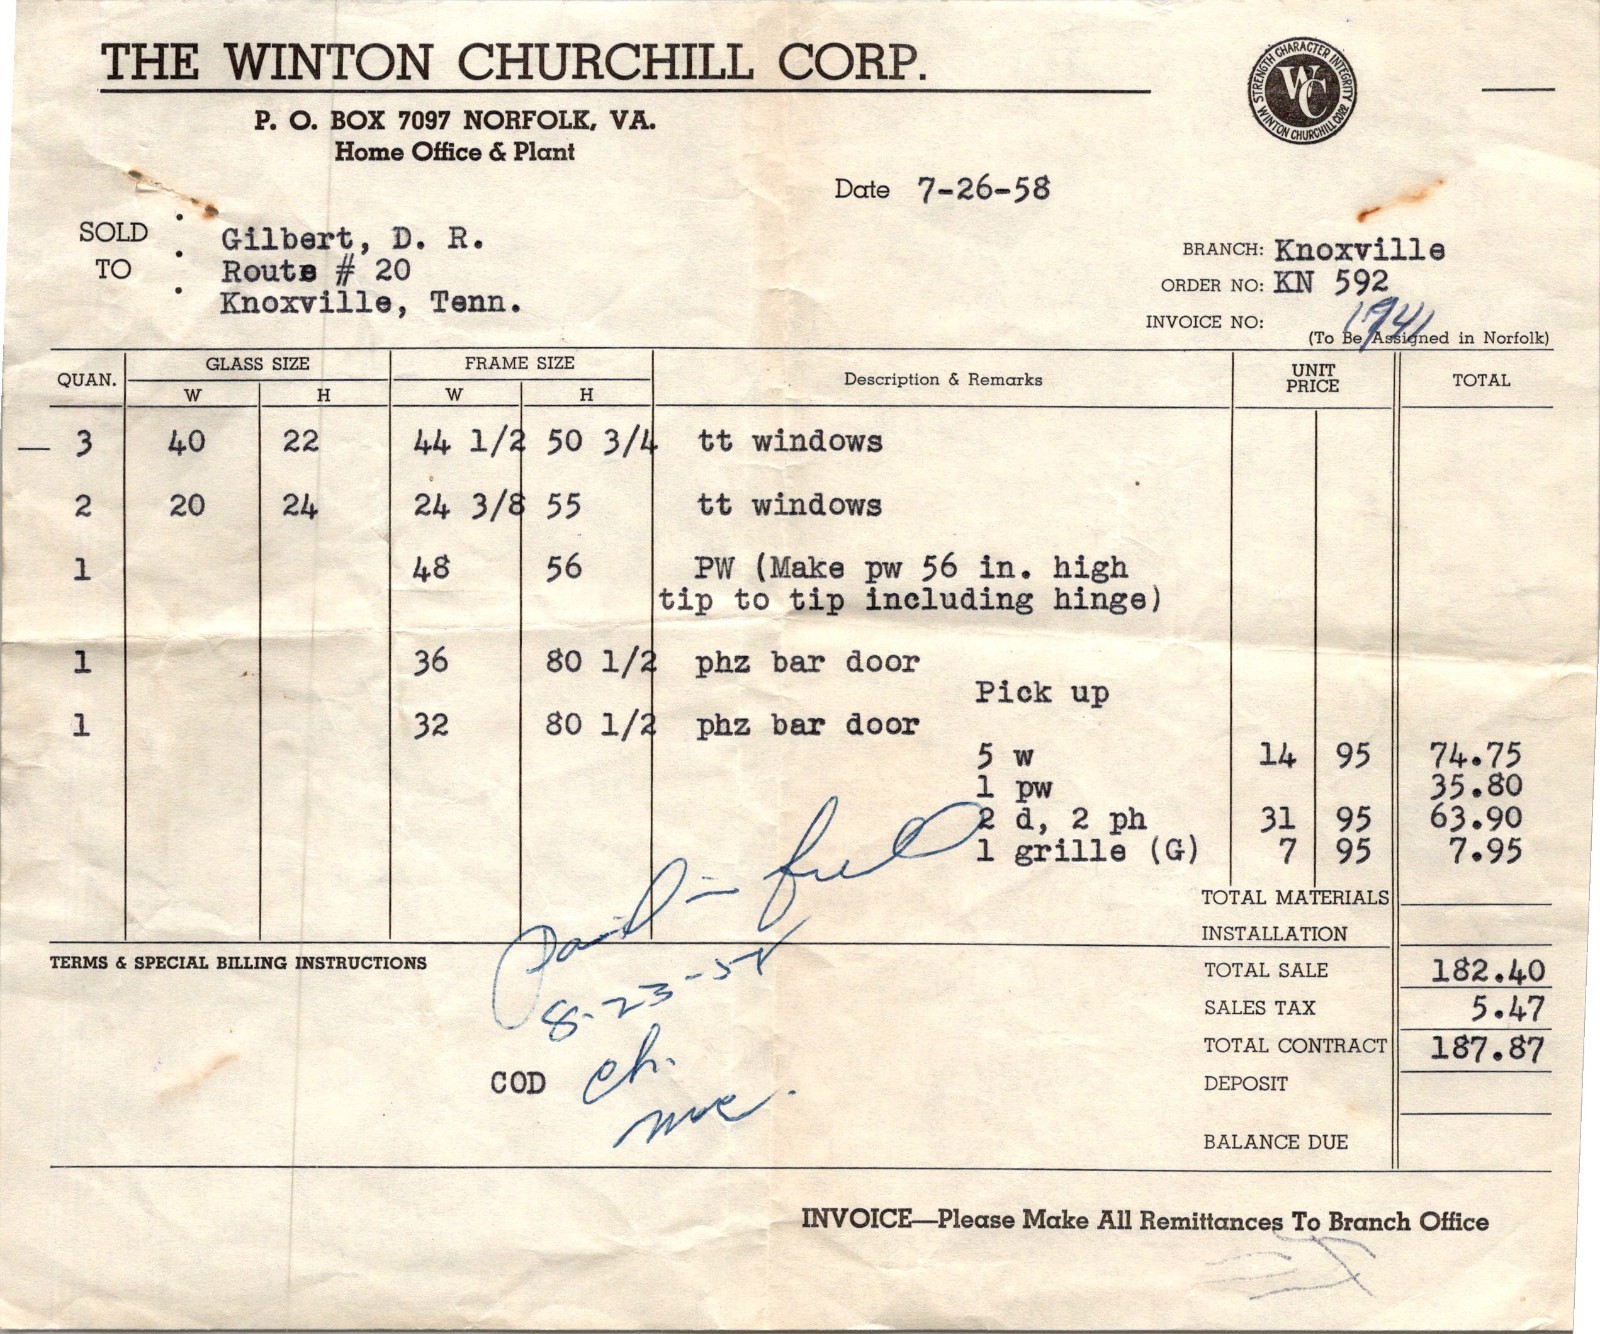 THE WINTON CHURCHILL CORP.
STRENGTH CHARACTER INTEGRITY
WC
WINTON CHURCHILL CORP.
P. O. BOX 7097 NORFOLK, VA.
Home Office & Plant
Date 7-26-58
SOLD TO : Gilbert, D. R.
Route # 20
Knoxville, Tenn.
BRANCH: Knoxville
ORDER NO: KN 592
INVOICE NO: 1941
(To Be Assigned in Norfolk)
QUAN. GLASS SIZE FRAME SIZE Description & Remarks UNIT PRICE TOTAL
W H W H
— 3 40 22 44 1/2 50 3/4 tt windows
2 20 24 24 3/8 55 tt windows
1 48 56 PW (Make pw 56 in. high
tip to tip including hinge)
1 36 80 1/2 phz bar door
Pick up
1 32 80 1/2 phz bar door
5 w 14 95 74.75
1 pw 35.80
2 d, 2 ph 31 95 63.90
1 grille (G) 7 95 7.95
TOTAL MATERIALS
INSTALLATION
TERMS & SPECIAL BILLING INSTRUCTIONS
TOTAL SALE 182.40
SALES TAX 5.47
TOTAL CONTRACT 187.87
DEPOSIT
BALANCE DUE
Paid in full
8-23-58
COD ch.
INVOICE—Please Make All Remittances To Branch Office